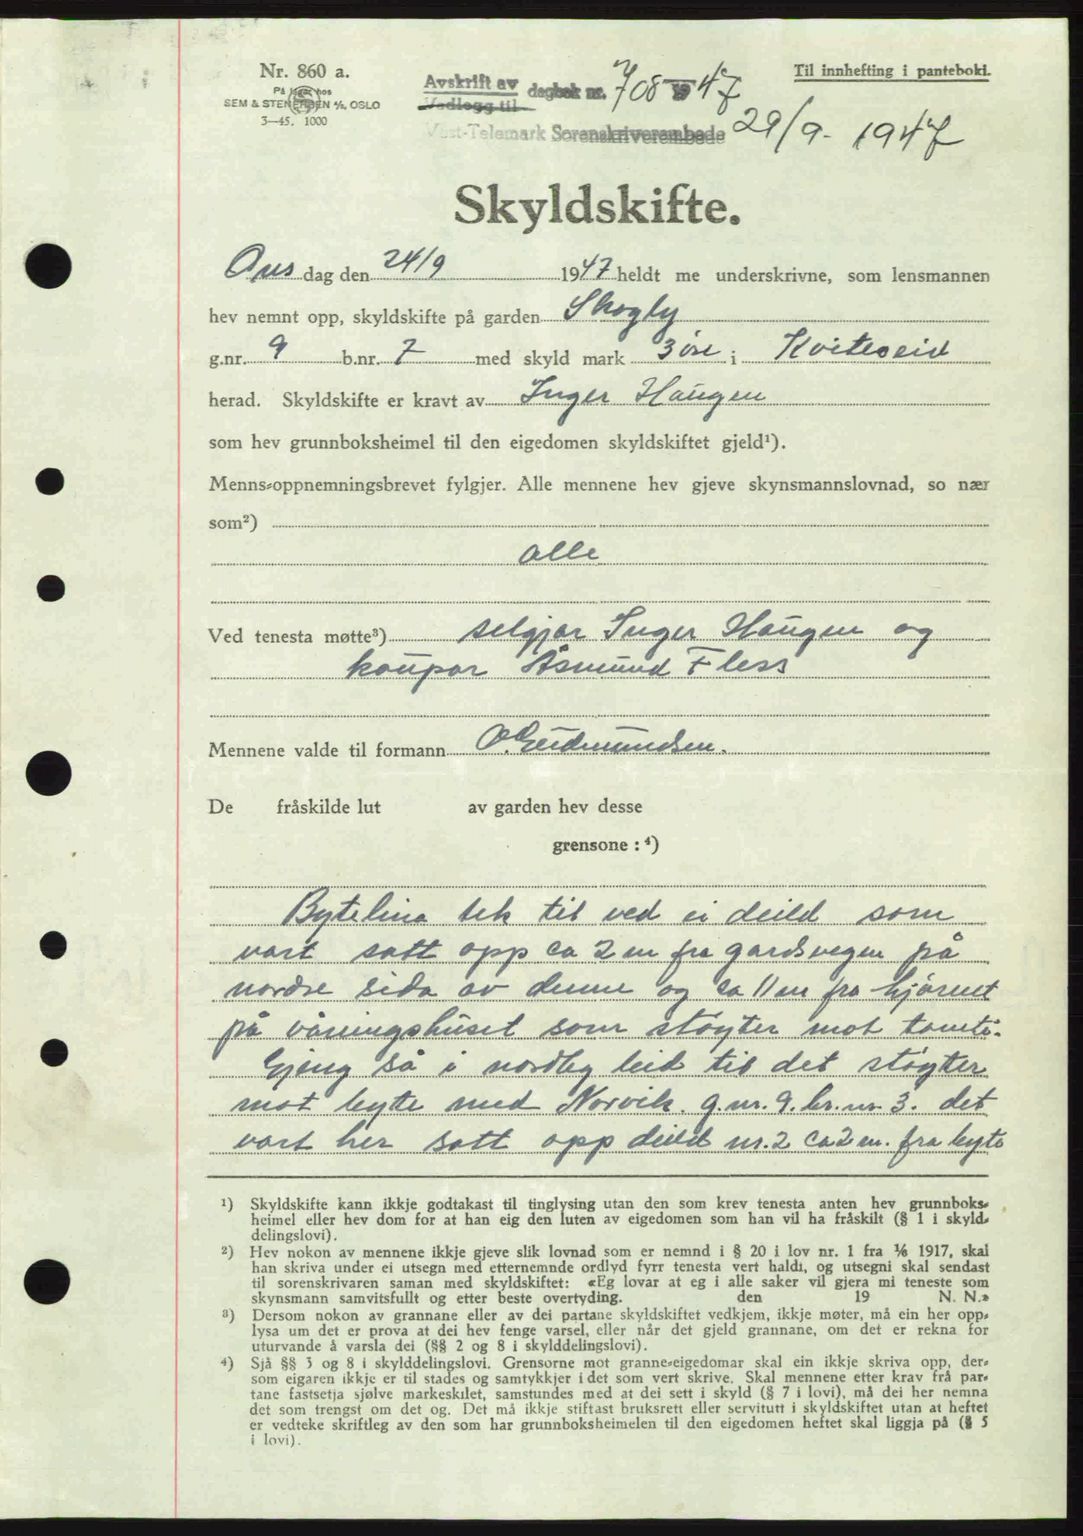 Nr. 860 a.
På lager hos
SEM & STENERSEN A/S, OSLO
3—45. 1000
Til innhefting i panteboki.
Avskrift av dagbok nr. 708 19 47
Vedlegg til
Vest-Telemark Sorenskriverembede 29/9 - 1947
Skyldskifte.
Ons dag den 24/9 1947 heldt me underskrivne, som lensmannen
hev nemnt opp, skyldskifte på garden Skogly
g.nr. 9 b.nr. 7 med skyld mark 3 øre i Kviteseid
herad. Skyldskifte er kravt av Inger Haugen
som hev grunnboksheimel til den eigedomen skyldskiftet gjeld¹).
Menns-oppnemningsbrevet fylgjer. Alle mennene hev gjeve skynsmannslovnad, so nær
som²)
alle
Ved tenesta møtte³) seljar Inger Haugen og
kaupar Åsmund Fless
Mennene valde til formann O. Gudmundsen.
De fråskilde lut av garden hev desse
grensone : ⁴)
Bytelina tek til ved ei deild som
vart sett opp ca 2 m fra gardsvegen på
nordre sida av denne og ca 11 m fra hjørnet
på våningshuset som støyter mot tomta.
Gjeng så i nordleg leid til det støyter
mot byte med Norvik. g.nr. 9. br.nr 3. det
vart her sett opp deild nr. 2 ca 2 m. fra byte
¹) Skyldskifte kann ikkje godtakast til tinglysing utan den som krev tenesta anten hev grunnboks-
heimel eller hev dom for at han eig den luten av eigedomen som han vil ha fråskilt (§ 1 i skyld-
delingslovi).
²) Hev nokon av mennene ikkje gjeve slik lovnad som er nemnd i § 20 i lov nr. 1 fra 1/6 1917, skal
han skriva under ei utsegn med etternemnde ordlyd fyrr tenesta vert haldi, og utsegni skal sendast
til sorenskrivaren saman med skyldskiftet: «Eg lovar at eg i alle saker vil gjera mi teneste som
skynsmann samvitsfullt og etter beste overtyding. den 19 N. N.»
³) Dersom nokon av grannane eller av dei partane skyldskiftet vedkjem, ikkje møter, må ein her opp-
lysa um det er prova at dei hev fenge varsel, eller når det gjeld grannane, om det er rekna for
uturvande å varsla dei (§§ 2 og 8 i skylddelingslovi).
⁴) Sjå §§ 3 og 8 i skylddelingslovi. Grensorne mot granne-eigedomar skal ein ikkje skriva opp, der-
som eigaren ikkje er til stades og samtykkjer i det som vert skrive. Skal mennene etter krav frå par-
tane fastsetja sjølve markeskilet, samstundes med at dei sett i skyld (§ 7 i lovi), må dei her nemna
det som trengst om det og. Det må ikkje stiftast bruksrett eller servitutt i skyldskiftet utan at heftet
er vedteke skriftleg av den som har grunnboksheimelen til den eigedomen heftet skal liggja på (§ 5
i lovi).